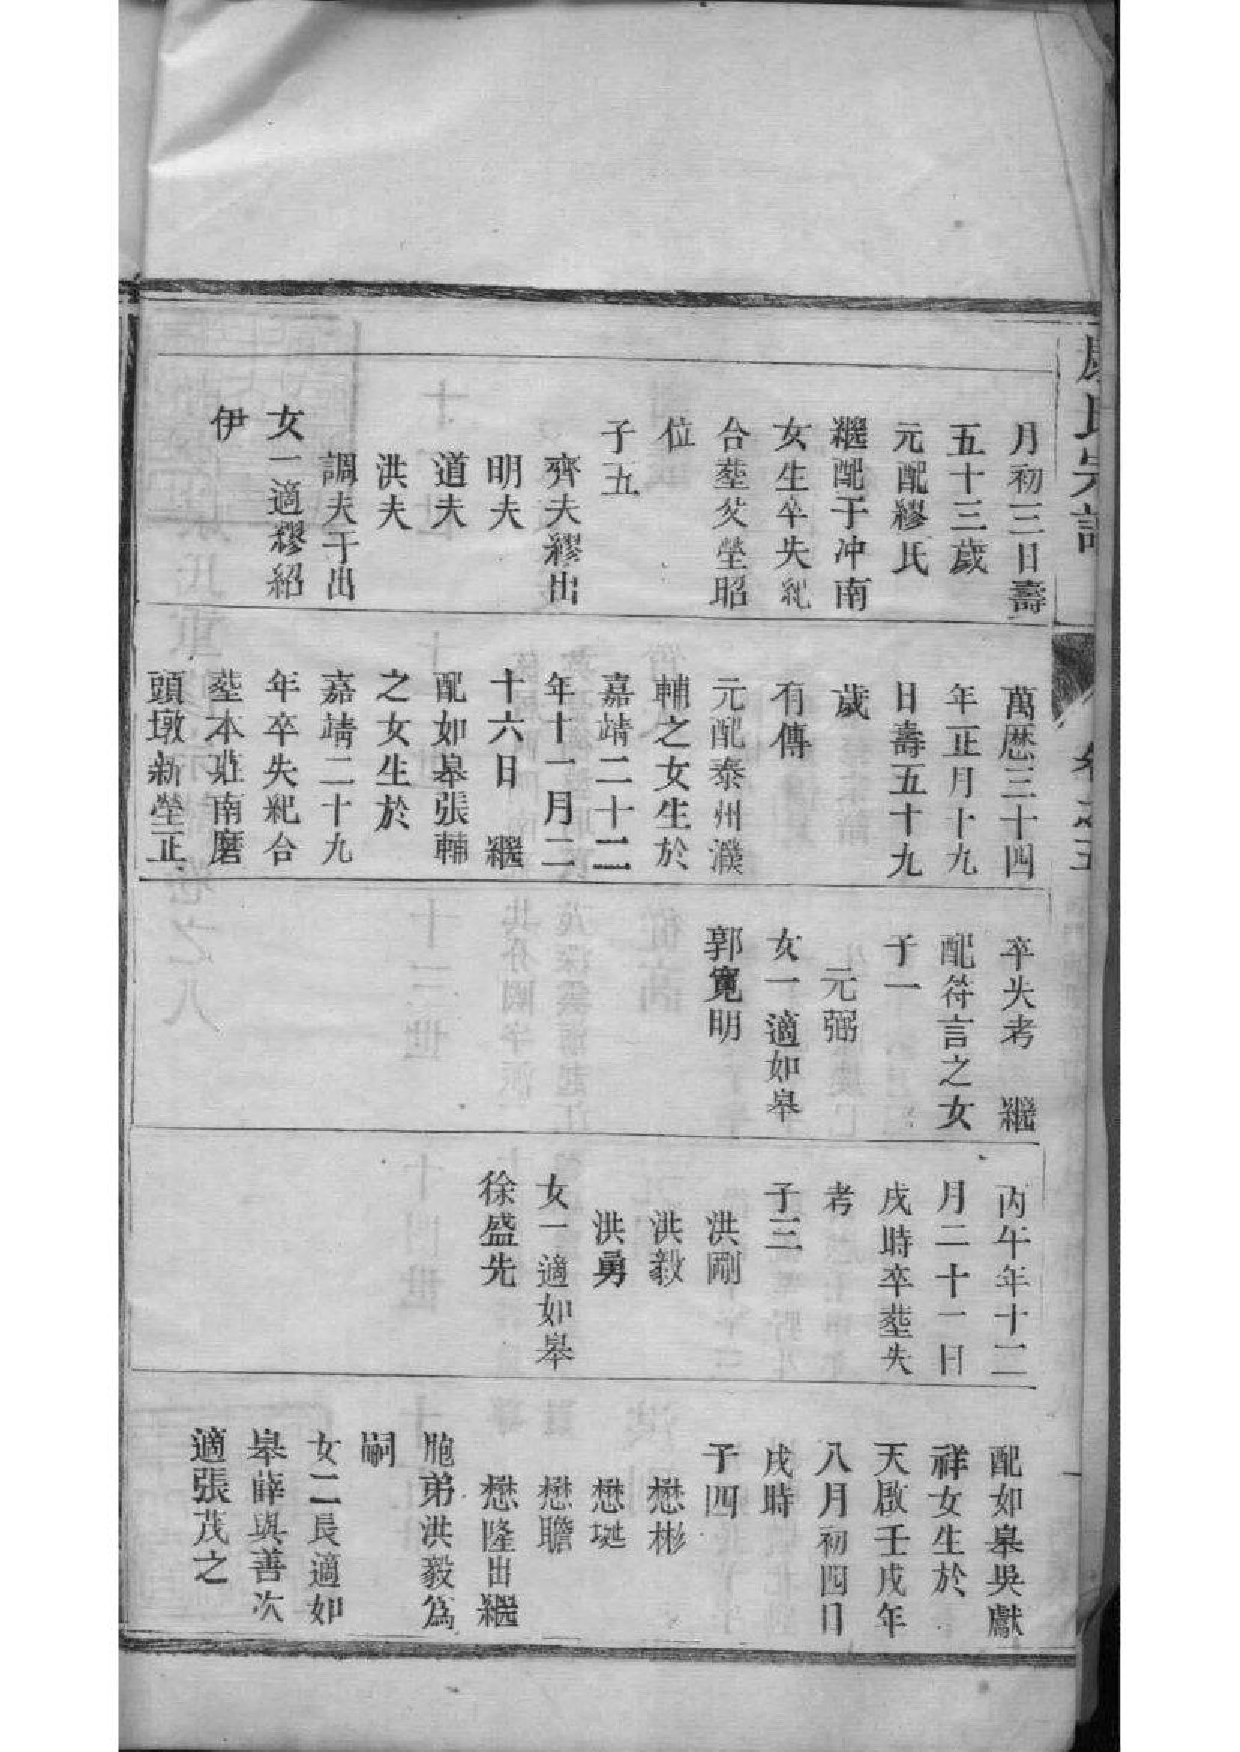 氏宗譜
卷之五
月初三日壽
五十三歲
元配繆氏
繼配于冲南
女生卒失紀
合塟父塋昭
位
子五
齊夫繆出
明夫
道夫
洪夫
調夫于出
女一適繆紹
伊
萬厯三十四
年正月十九
日壽五十九
歲
有傳
元配泰州濮
輔之女生於
嘉靖二十二
年十一月二
十六日 繼
配如皋張輔
之女生於
嘉靖二十九
年卒失紀合
塟本庄南磨
頭墩新塋正
卒失考 繼
配符言之女
子一
元弼
女一適如皋
郭寬明
丙午年十二
月二十一日
戌時卒塟失
考
子三
洪剛
洪毅
洪勇
女一適如皋
徐盛先
配如皋吳獻
祥女生於
天啟壬戌年
八月初四日
戌時
子四
懋彬
懋埏
懋瞻
懋隆出繼
胞弟洪毅爲
嗣
女二長適如
皋薛與善次
適張茂之